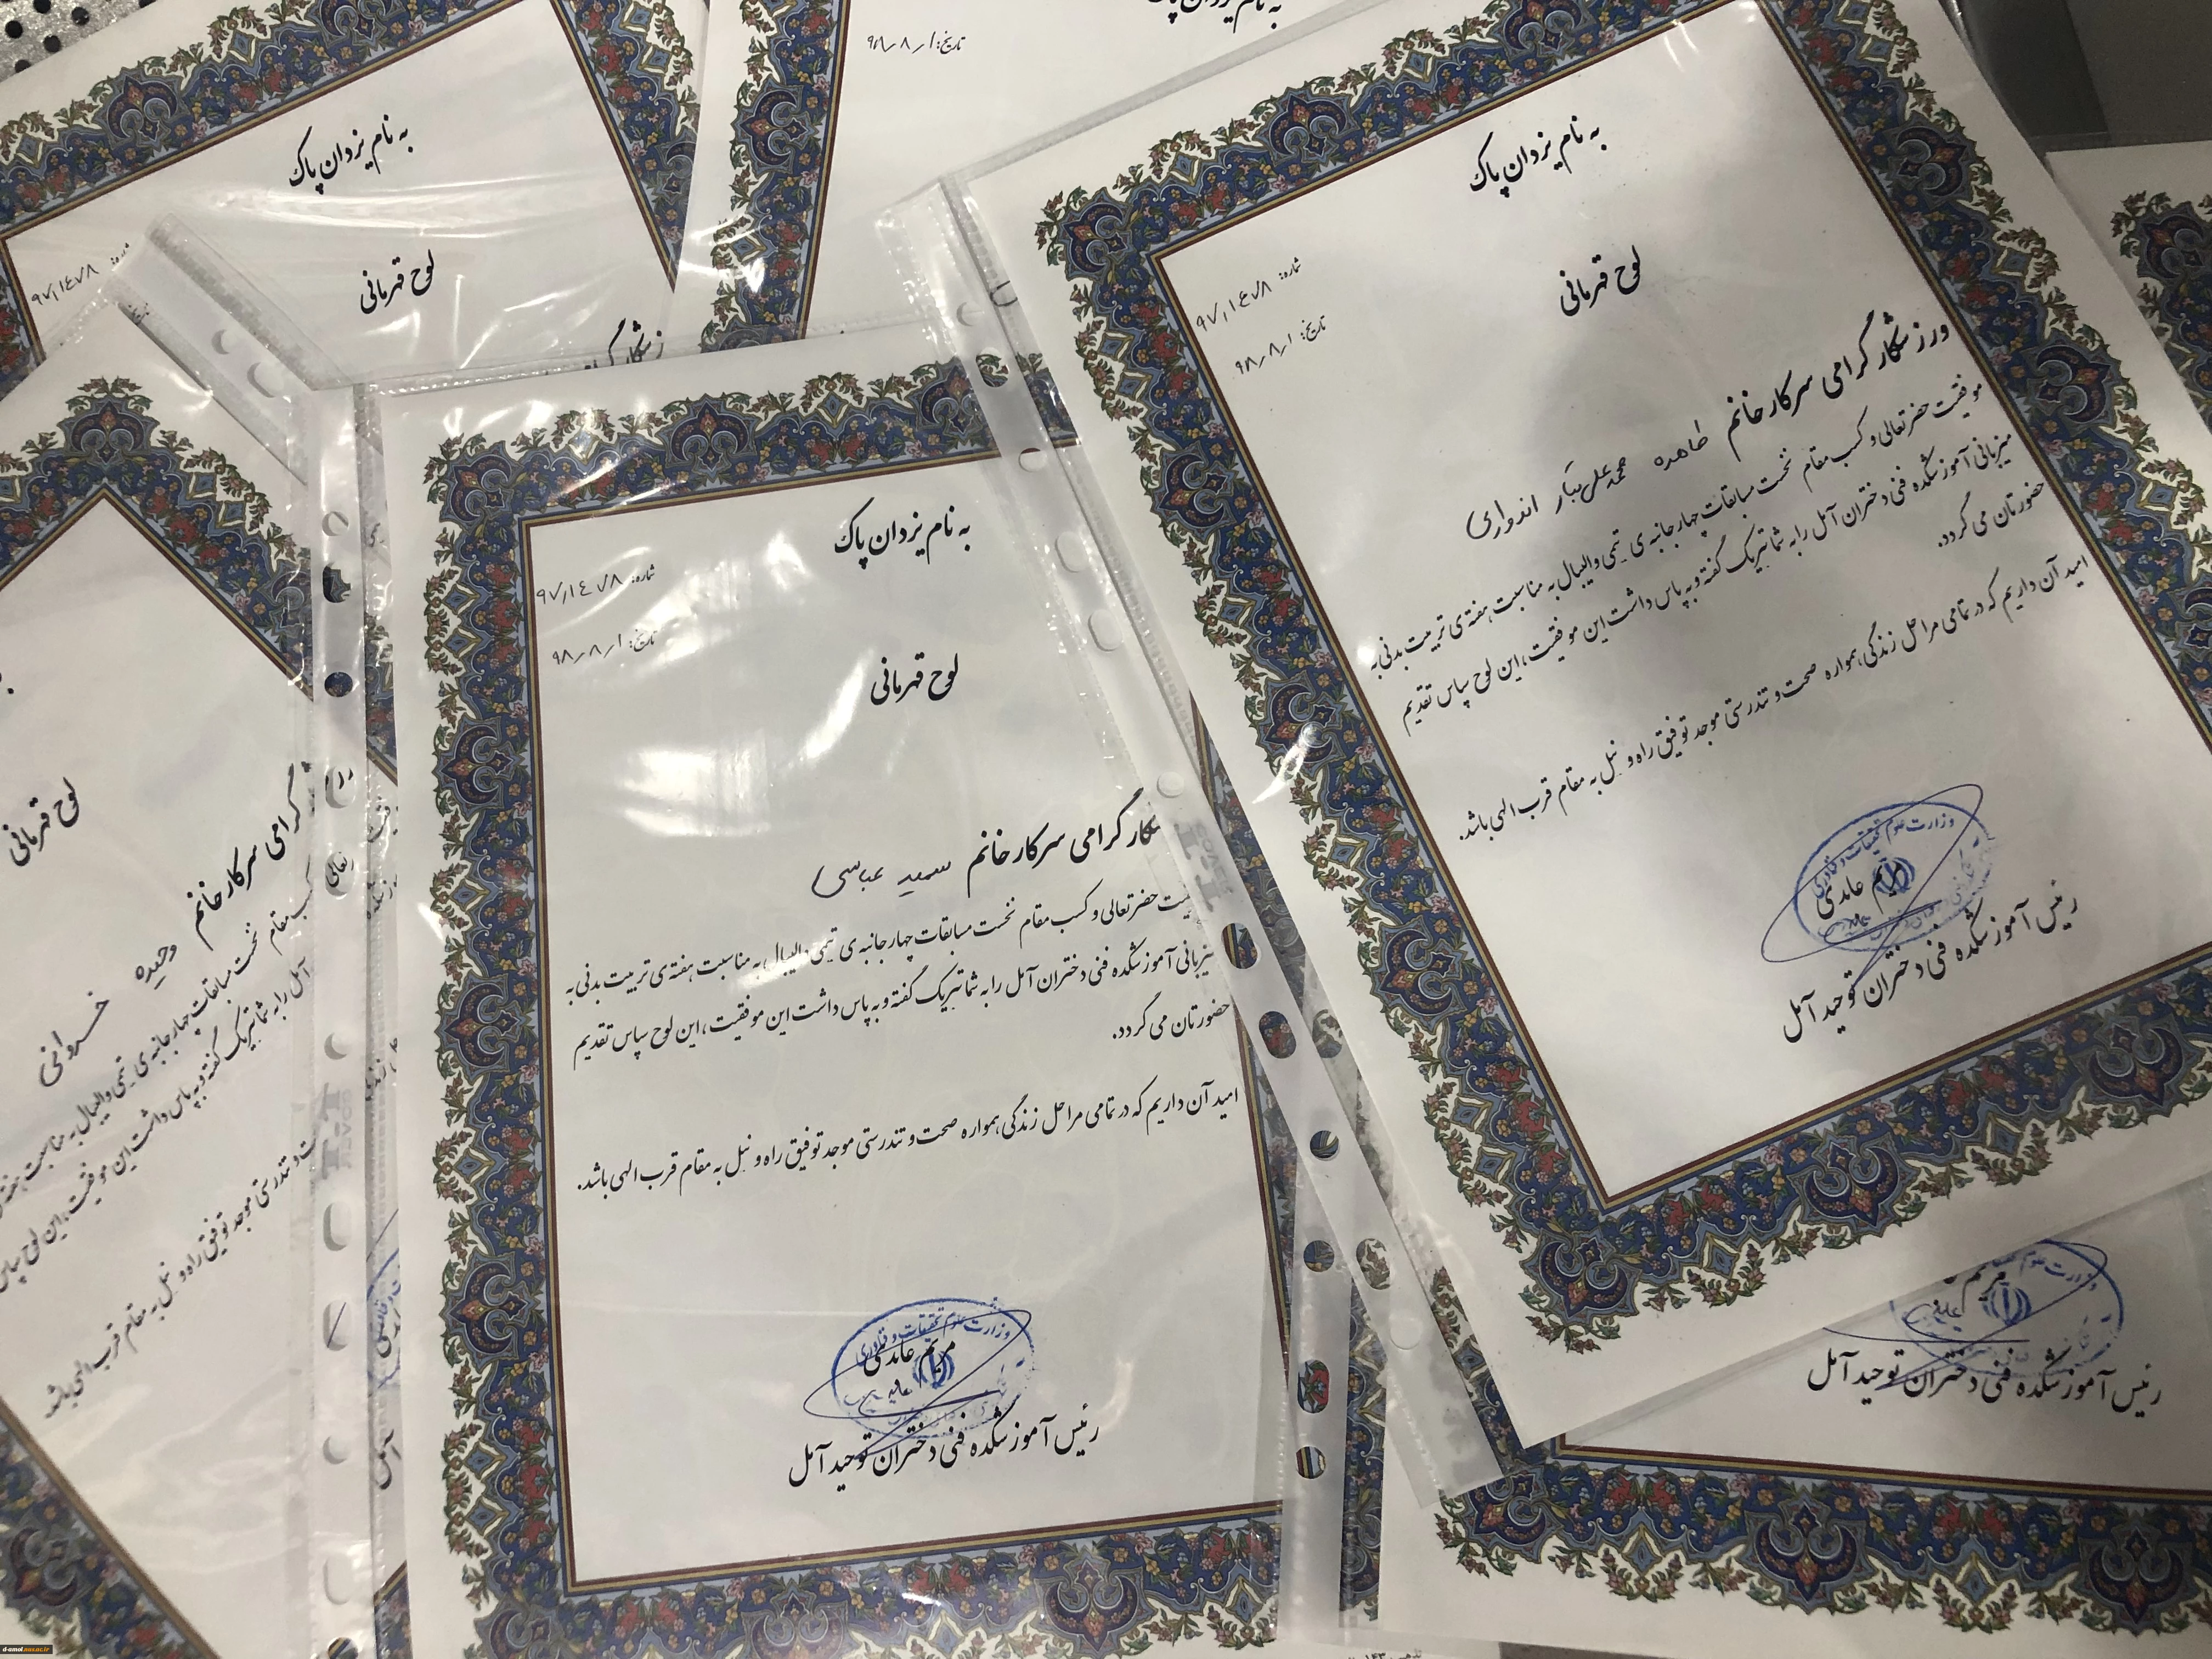 به نام یزدان پاک
شماره: ۹۷,۱٤۷۸
لوح قهرمانی
تاریخ: ۹۸٫۸٫۱
به نام یزدان پاک
شماره: ۹۷,۱٤۷۸
تاریخ: ۹۸٫۸٫۱
لوح قهرمانی
ورزشکار گرامی سرکار خانم طاهره محمدعلی تبار اندواری
موفقیت حضرتعالی و کسب مقام نخست مسابقات چهار جانبه ی تیمی والیبال به مناسبت هفته ی تربیت بدنی به
میزبانی آموزشکده فنی دختران آمل را به شما تبریک گفته و به پاس داشت این موفقیت، این لوح سپاس تقدیم
حضورتان می گردد.
امید آن داریم که در تمامی مراحل زندگی همواره صحت و تندرستی موجد توفیق راه و نیل به مقام قرب الهی باشد.
وزارت علوم تحقیقات و فناوری
مریم عابدی
رئیس آموزشکده فنی دختران توحید آمل
به نام یزدان پاک
شماره: ۹۷,۱٤۷۸
تاریخ: ۹۸٫۸٫۱
لوح قهرمانی
گرامی سرکار خانم عباسی
حضرتعالی و کسب مقام نخست مسابقات چهار جانبه ی تیمی والیبال به مناسبت هفته ی تربیت بدنی به
میزبانی آموزشکده فنی دختران آمل را به شما تبریک گفته و به پاس داشت این موفقیت، این لوح سپاس تقدیم
حضورتان می گردد.
امید آن داریم که در تمامی مراحل زندگی همواره صحت و تندرستی موجد توفیق راه و نیل به مقام قرب الهی باشد.
وزارت علوم تحقیقات و فناوری
مریم عابدی
رئیس آموزشکده فنی دختران توحید آمل
لوح قهرمانی
گرامی سرکار خانم وحیده خسروانی
کسب مقام نخست مسابقات چهار جانبه ی تیمی والیبال به مناسبت
آمل را به شما تبریک گفته و به پاس داشت این موفقیت، این لوح سپاس
تندرستی موجد توفیق راه و نیل به مقام قرب الهی باشد.
آمل
مریم
رئیس آموزشکده فنی دختران توحید آمل
d-amol.nus.ac.ir